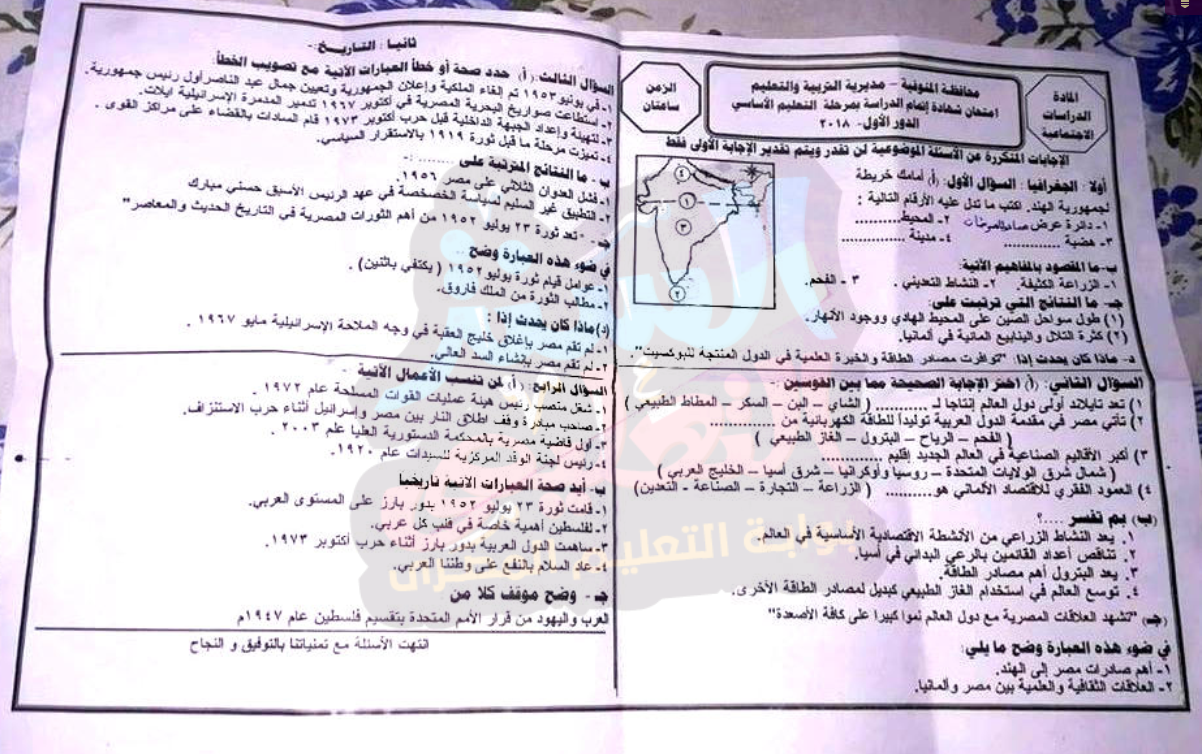 المادة
الدراسات
الاجتماعية
محافظة المنوفية – مديرية التربية والتعليم
امتحان شهادة إتمام الدراسة بمرحلة التعليم الأساسي
الدور الأول- ٢٠١٨
الزمن
ساعتان
الإجابات المتكررة عن الأسئلة الموضوعية لن تقدر ويتم تقدير الإجابة الأولى فقط
أولا : الجغرافيا : السؤال الأول: (أ) أمامك خريطة
لجمهورية الهند. اكتب ما تدل عليه الأرقام التالية :
١- دائرة عرض ٢- المحيط..........
٣- هضبة ............. ٤- مدينة ...............
٤
١
٣
٢
ب- ما المقصود بالمفاهيم الآتية:
١- الزراعة الكثيفة. ٢- النشاط التعديني . ٣ - الفحم.
جـ- ما النتائج التي ترتبت على:
(١) طول سواحل الصين على المحيط الهادي ووجود الأنهار.
(٢) كثرة التلال والينابيع المائية في ألمانيا.
د- ماذا كان يحدث إذا: "توافرت مصادر الطاقة والخبرة العلمية في الدول المنتجة للبوكسيت".
السؤال الثاني: (أ) اختر الإجابة الصحيحة مما بين القوسين :-
١) تعد تايلاند أولى دول العالم إنتاجا لـ ............ ( الشاي – البن – السكر – المطاط الطبيعي )
٢) تأتي مصر في مقدمة الدول العربية توليداً للطاقة الكهربائية من ..............
( الفحم – الرياح – البترول – الغاز الطبيعي )
٣) أكبر الأقاليم الصناعية في العالم الجديد إقليم ..............
( شمال شرق الولايات المتحدة – روسيا وأوكرانيا – شرق أسيا – الخليج العربي )
٤) العمود الفقري للاقتصاد الألماني هو.......... ( الزراعة – التجارة – الصناعة - التعدين)
(ب) بم تفسر ....؟
١. يعد النشاط الزراعي من الأنشطة الاقتصادية الأساسية في العالم.
٢. تناقص أعداد القائمين بالرعي البدائي في أسيا.
٣. يعد البترول أهم مصادر الطاقة.
٤. توسع العالم في استخدام الغاز الطبيعي كبديل لمصادر الطاقة الأخرى.
(جـ) "تشهد العلاقات المصرية مع دول العالم نموا كبيرا على كافة الأصعدة"
في ضوء هذه العبارة وضح ما يلي:
١- أهم صادرات مصر إلى الهند.
٢- العلاقات الثقافية والعلمية بين مصر وألمانيا.
ثانيا : التاريخ:-
السؤال الثالث: (أ) حدد صحة أو خطأ العبارات الآتية مع تصويب الخطأ:
١- في يونيو١٩٥٣ تم إلغاء الملكية وإعلان الجمهورية وتعيين جمال عبد الناصر أول رئيس جمهورية.
٢- استطاعت صواريخ البحرية المصرية في أكتوبر ١٩٦٧ تدمير المدمرة الإسرائيلية ايلات.
٣- لتهيئة وإعداد الجبهة الداخلية قبل حرب أكتوبر ١٩٧٣ قام السادات بالقضاء على مراكز القوى .
٤- تميزت مرحلة ما قبل ثورة ١٩١٩ بالاستقرار السياسي.
ب - ما النتائج المترتبة على ........ :-
١- فشل العدوان الثلاثي على مصر ١٩٥٦.
٢- التطبيق غير السليم لسياسة الخصخصة في عهد الرئيس الأسبق حسني مبارك
جـ - "تعد ثورة ٢٣ يوليو ١٩٥٢ من أهم الثورات المصرية في التاريخ الحديث والمعاصر"
في ضوء هذه العبارة وضح ..
١- عوامل قيام ثورة يوليو ١٩٥٢ ( يكتفي باثنين) .
٢- مطالب الثورة من الملك فاروق.
(د) ماذا كان يحدث إذا :
١- لم تقم مصر بإغلاق خليج العقبة في وجه الملاحة الإسرائيلية مايو ١٩٦٧ .
٢- لم تقم مصر بإنشاء السد العالي.
السؤال الرابع: (أ) لمن تنسب الأعمال الآتية -
١- شغل منصب رئيس هيئة عمليات القوات المسلحة عام ١٩٧٢ .
٢- صاحب مبادرة وقف اطلاق النار بين مصر وإسرائيل أثناء حرب الاستنزاف.
٣- أول قاضية مصرية بالمحكمة الدستورية العليا علم ٢٠٠٣ .
٤- رئيس لجنة الوفد المركزية للسيدات عام ١٩٢٠.
ب- أيد صحة العبارات الآتية تاريخيا
١- قامت ثورة ٢٣ يوليو ١٩٥٢ بدور بارز على المستوى العربي.
٢- لفلسطين أهمية خاصة في قلب كل عربي.
٣- ساهمت الدول العربية بدور بارز أثناء حرب أكتوبر ١٩٧٣.
٤- عاد السلام بالنفع على وطننا العربي.
جـ - وضح موقف كلا من
العرب واليهود من قرار الأمم المتحدة بتقسيم فلسطين عام ١٩٤٧م
انتهت الأسئلة مع تمنياتنا بالتوفيق و النجاح
بوابة التعليم